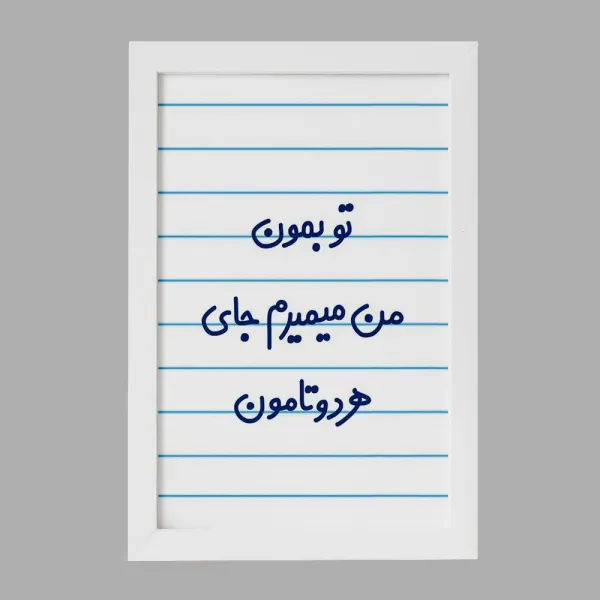 تو بمون
من میمیرم جای
هردوتامون